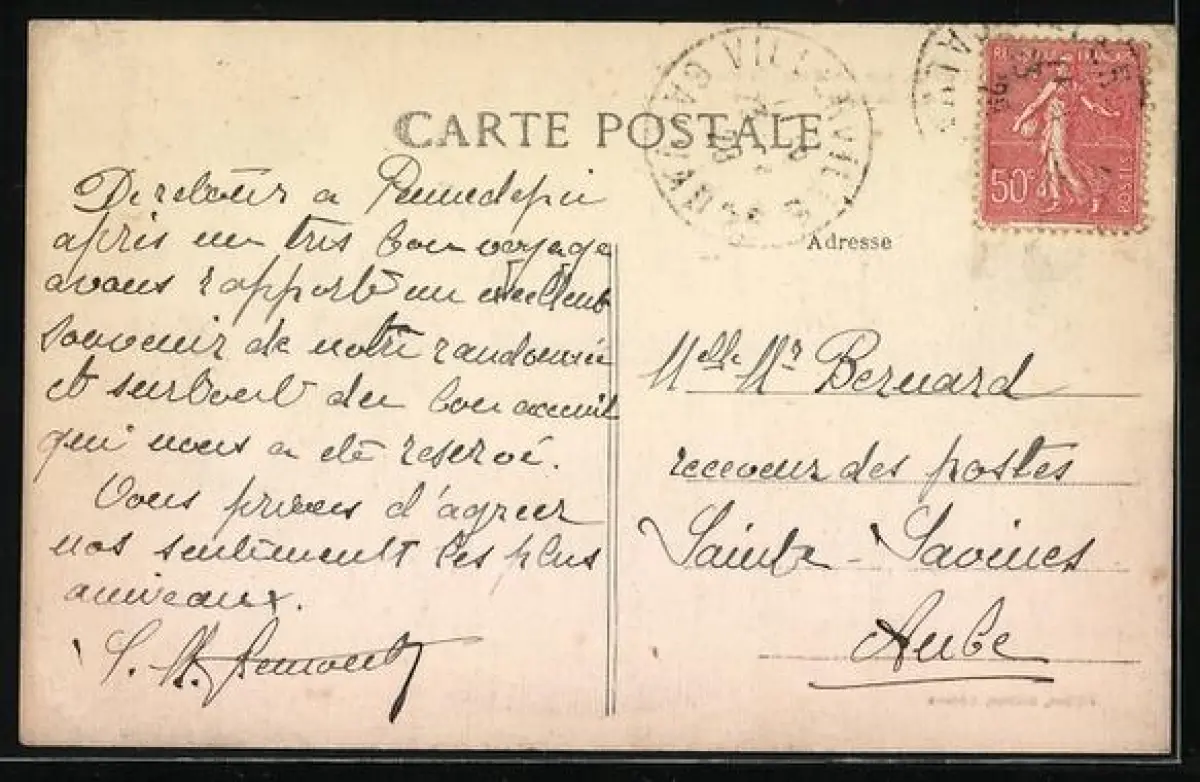 CARTE POSTALE
VILLERVILLE
CALVADOS
REPUBLIQUE FRANÇAISE
50c
POSTES
Adresse
De retour a Pennedepie
après un très bon voyage
avons rapporté un excellent
souvenir de notre randonnée
et surtout du bon accueil
qui nous a été reservé.
Vous prions d'agréer
nos sentiments les plus
amicaux.
Melle Mr Bernard
receveur des postes
Sainte-Savines
Aube